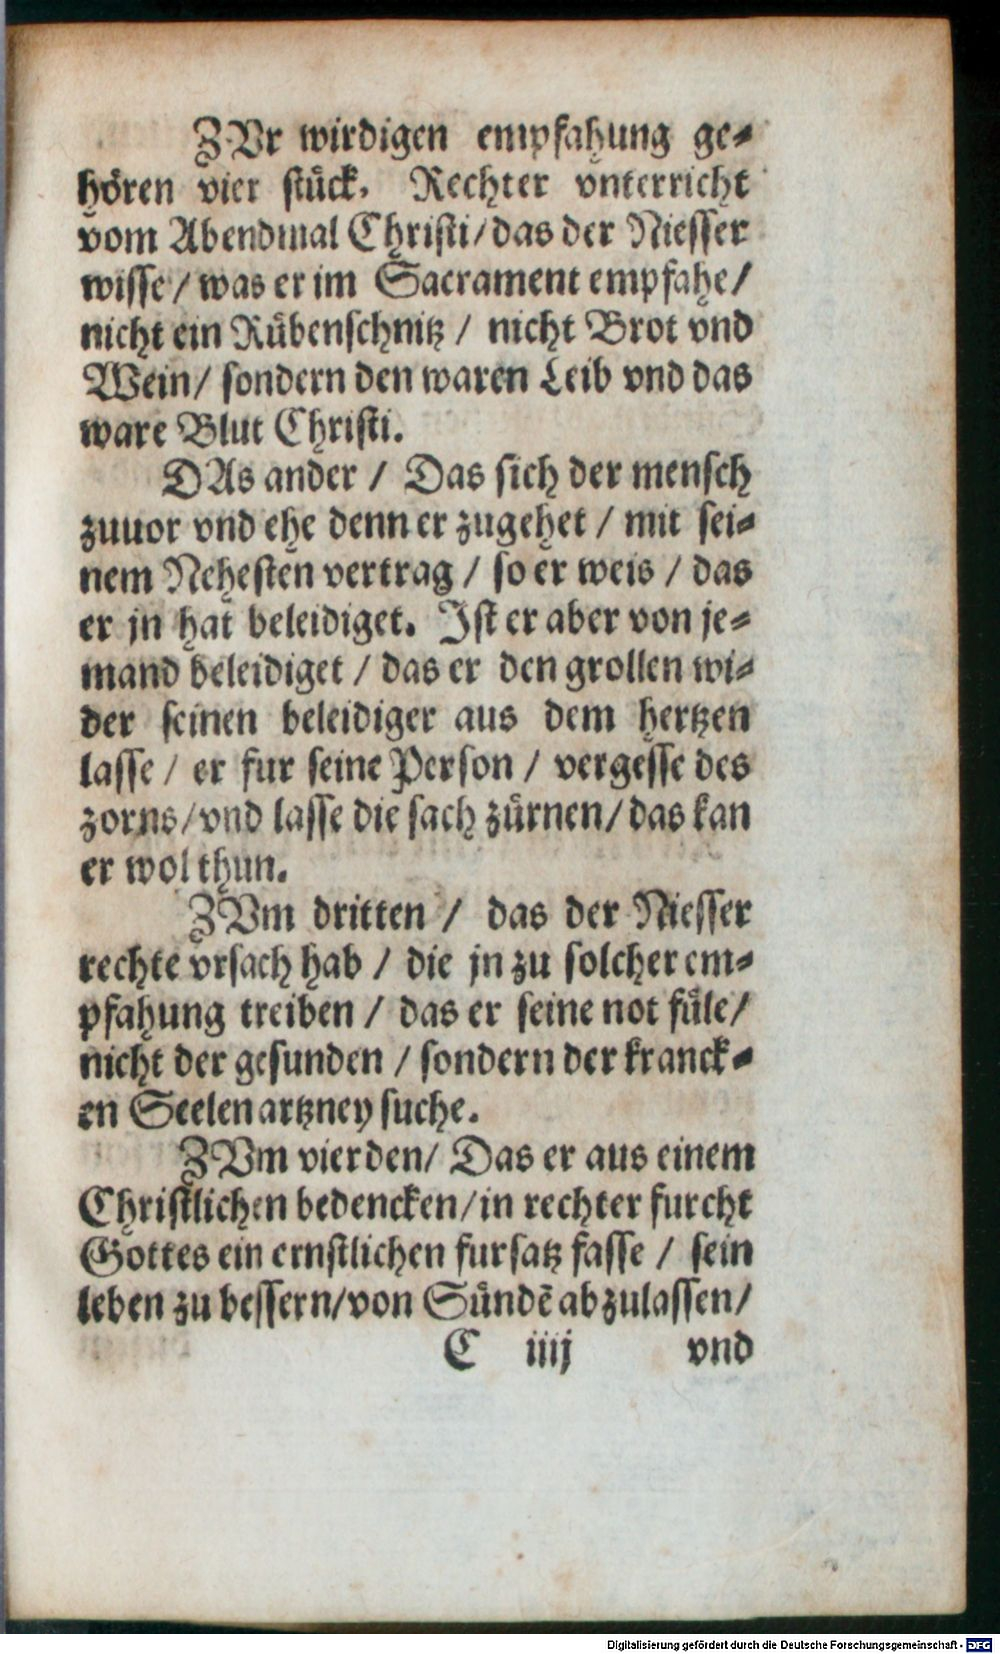 ZVr wirdigen empfahung ge⸗
hören vier stück. Rechter vnterricht
vom Abendmal Christi/das der Niesser
wisse/was er im Sacrament empfahe/
nicht ein Rübenschnitz / nicht Brot vnd
Wein/ sondern den waren Leib vnd das
ware Blut Christi.
DAs ander / Das sich der mensch
zuuor vnd ehe denn er zugehet / mit sei⸗
nem Nehesten vertrag / so er weis / das
er jn hat beleidiget. Ist er aber von je⸗
mand beleidiget / das er den grollen wi⸗
der seinen beleidiger aus dem hertzen
lasse / er fur seine Person / vergesse des
zorns/vnd lasse die sach zürnen/das kan
er wol thun.
ZVm dritten / das der Niesser
rechte vrsach hab / die jn zu solcher em⸗
pfahung treiben / das er seine not füle/
nicht der gesunden / sondern der kranck⸗
en Seelen artzney suche.
ZVm vierden/ Das er aus einem
Christlichen bedencken/in rechter furcht
Gottes ein ernstlichen fursatz fasse / sein
leben zu bessern/von Sündē abzulassen/
C iiij vnd
Digitalisierung gefördert durch die Deutsche Forschungsgemeinschaft - DFG